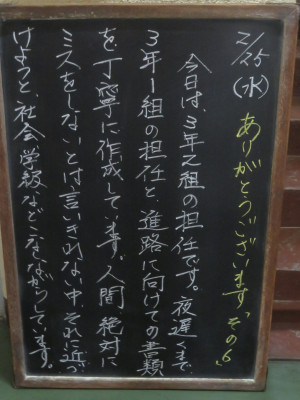 2/25(水)
ありがとうございます、その6」
今日は、3年2組の担任です。夜遅くまで、
3年1組の担任と、進路に向けての書類
を、丁寧に作成しています。人間、絶対に
ミスをしないとは、言いきれない中、それに近づ
けようと、社会、学級などこなしながらしています。